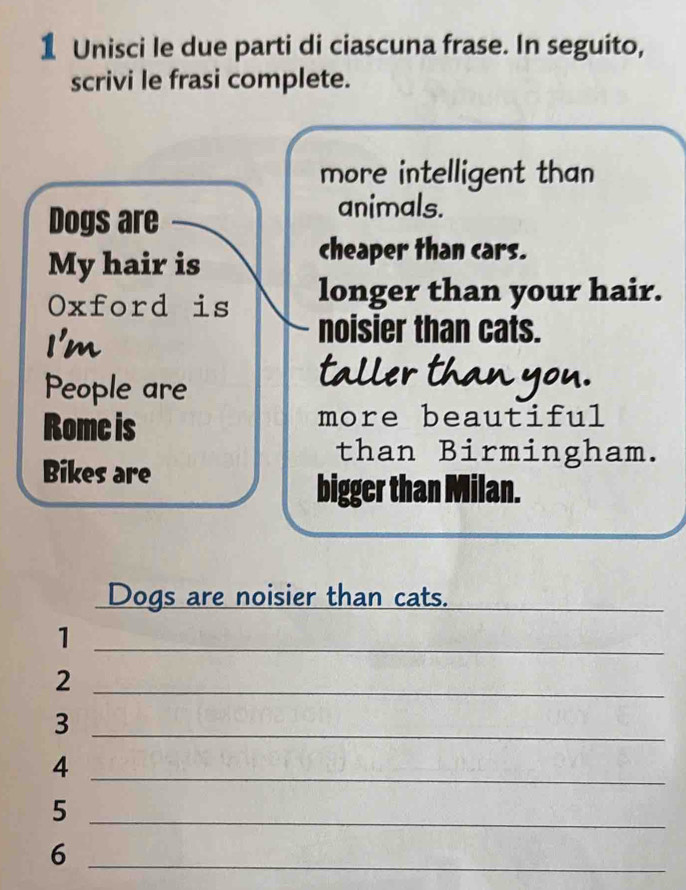 1 Unisci le due parti di ciascuna frase. In seguito,
scrivi le frasi complete.
Dogs are
My hair is
Oxford is
I'm
People are
Rome is
Bikes are
more intelligent than
animals.
cheaper than cars.
longer than your hair.
noisier than cats.
taller than you.
more beautiful
than Birmingham.
bigger than Milan.
Dogs are noisier than cats.
1
2
3
4
5
6